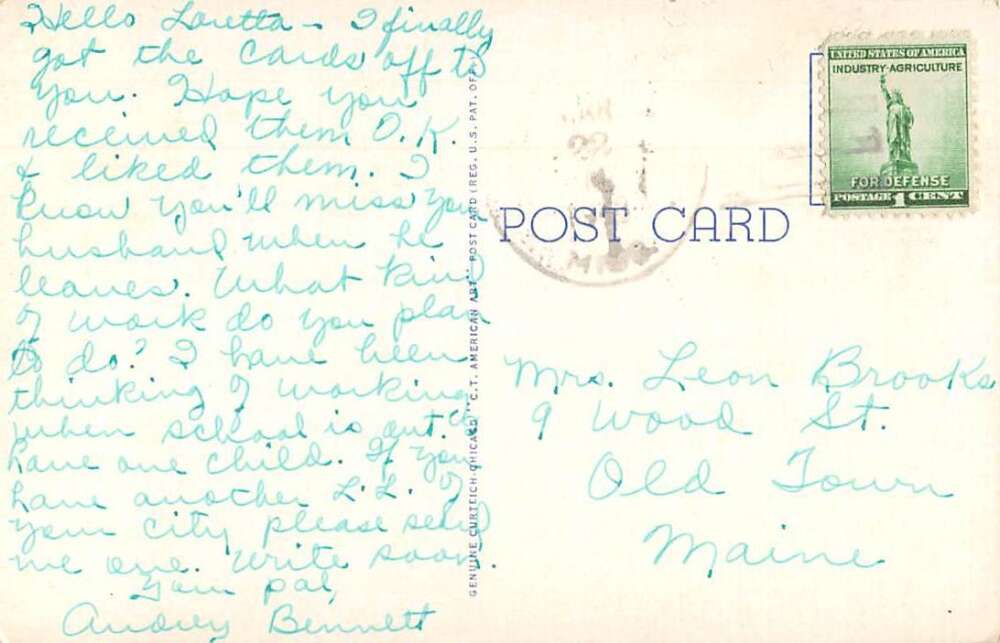 Hello Loretta - I finally
got the cards off to
you. Hope you
received them O.K.
& liked them. I
know you'll miss your
husband when he
leaves. What kind
of work do you plan
to do? I have been
thinking of working
when school is out. I
have one child. If you
have another L.L. of
your city please send
me one. Write soon.
Your pal,
Audrey Bennett
GENUINE CURTEICH-CHICAGO "C.T. AMERICAN ART" POST CARD (REG. U.S. PAT. OFF.)
UNITED STATES OF AMERICA
INDUSTRY-AGRICULTURE
FOR DEFENSE
POSTAGE 1 CENT
POST CARD
Mrs. Leon Brooks
9 Wood St.
Old Town
Maine